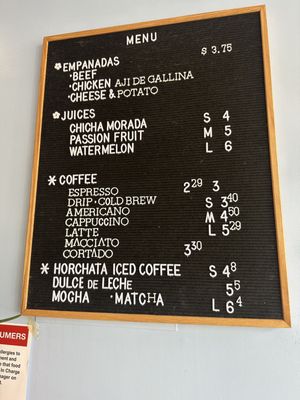 MENU
EMPANADAS $ 3.75
·BEEF
·CHICKEN AJI DE GALLINA
·CHEESE & POTATO
JUICES S 4
CHICHA MORADA M 5
PASSION FRUIT L 6
WATERMELON
* COFFEE
ESPRESSO 2 29 3
DRIP · COLD BREW S 3 40
AMERICANO M 4 50
CAPPUCCINO L 5 29
LATTE
MACCIATO
CORTADO 3 30
* HORCHATA ICED COFFEE S 4 8
DULCE DE LECHE 5 5
MOCHA · MATCHA L 6 4
UMERS
llergies to
ment and
e that food
is Charge
nager on